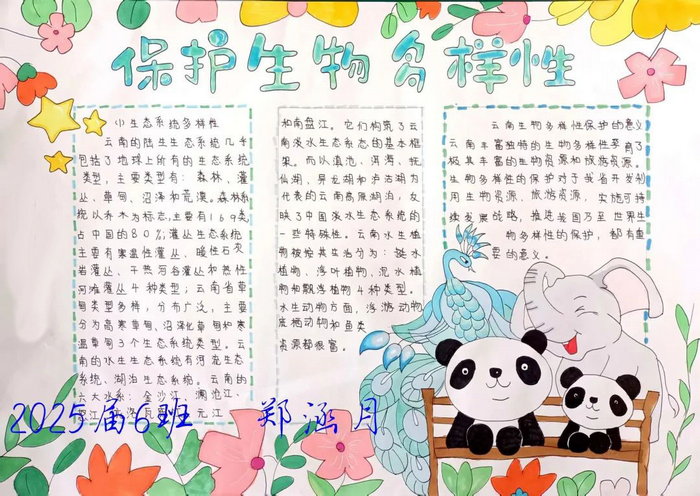 保护生物多样性
(1)生态系统多样性
云南的陆生生态系统几乎
包括了地球上所有的生态系统
类型,主要类型有:森林、灌
丛、草甸、沼泽和荒漠。森林系
统以乔木为标志,主要有169类
占中国的80%;灌丛生态系统
主要有寒温性灌丛、暖性石灰
岩灌丛、干热河谷灌丛和热性
河滩灌丛4种类型;云南省草
甸类型多样,分布广泛,主要
分为高寒草甸、沼泽化草甸和寒
温草甸3个生态系统类型。云
南的水生生态系统有河流生态
系统、湖泊生态系统。云南的
六大水系:金沙江、澜沧江、
元江
和南盘江。它们构筑了云
南淡水生态系态的基本框
果。而以滇池、洱海、抚
仙湖、异龙湖和泸沽湖为
代表的云南高原湖泊,反
映了中国淡水生态系统的
一些特殊性。云南水生植
物被按其生活分为:挺水
植物、浮叶植物、沉水植
物和飘浮植物4种类型。
水生动物方面,浮游动物
底栖动物和鱼类
资源都很富。
云南生物多样性保护的意义
云南丰富独特的生物多样性孕育了
极其丰富的生物资源和旅游资源。
生物多样性的保护对于我省开发利
用生物资源、旅游资源,实施可持
续发展战略,推进我国乃至世界生
物多样性的保护,都有重
要的意义。
2025届6班 郑涵月